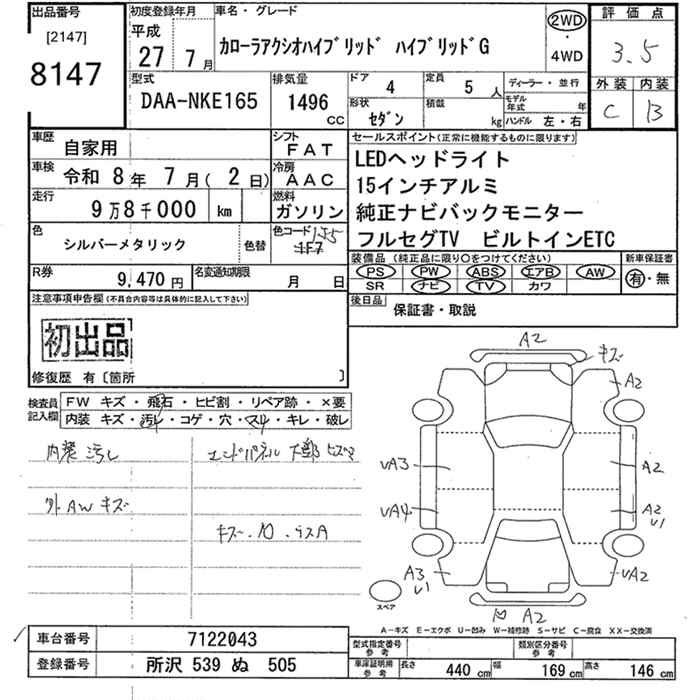 出品番号
[2147]
8147
初度登録年月
平成
27 年 7 月
車名・グレード
カローラアクシオハイブリッド ハイブリッドG
2WD
・
4WD
評価点
3.5
外装 内装
C B
型式
DAA-NKE165
排気量
1496
CC
ドア
4
定員
5 人
形状
セダン
積載
kg
ディーラー・並行
モデル年式 年
ハンドル 左・右
車歴
自家用
シフト
FAT
車検
令和 8 年 7 月( 2 日)
冷房
AAC
走行
9万8千000 km
燃料
ガソリン
色
シルバーメタリック
色替
色コード
1J5
1F7
R券
9,470 円
名変通知期限
月 日
セールスポイント(正常に機能するものに限ります)
LEDヘッドライト
15インチアルミ
純正ナビバックモニター
フルセグTV ビルトインETC
装備品 (純正品に限り〇をつけてください)
PS PW ABS エアB AW
SR ナビ TV カワ
新車保証書
有・無
後日品
保証書・取説
注意事項申告欄(不具合内容等は具体的に記入して下さい)
初出品
修復歴 有〔箇所 〕
検査員
記入欄
FW キズ・飛石・ヒビ割・リペア跡・×要
内装 キズ・汚れ・コゲ・穴・スレ・キレ・破レ
内装汚レ
エンドパネル 下部
外AWキズ
キズ.凹
A2
キズ
A2
UA3
A2
UA4
A2
U1
A3
U1
UA2
A2
スペア
A-キズ E-エクボ U-凹み W-補修跡 S-サビ C-腐食 XX-交換済
車台番号
7122043
登録番号
所沢 539 ぬ 505
型式指定番号
参考
類別区分番号
参考
車庫証明用
参考
長さ
440 cm
幅
169 cm
高さ
146 cm